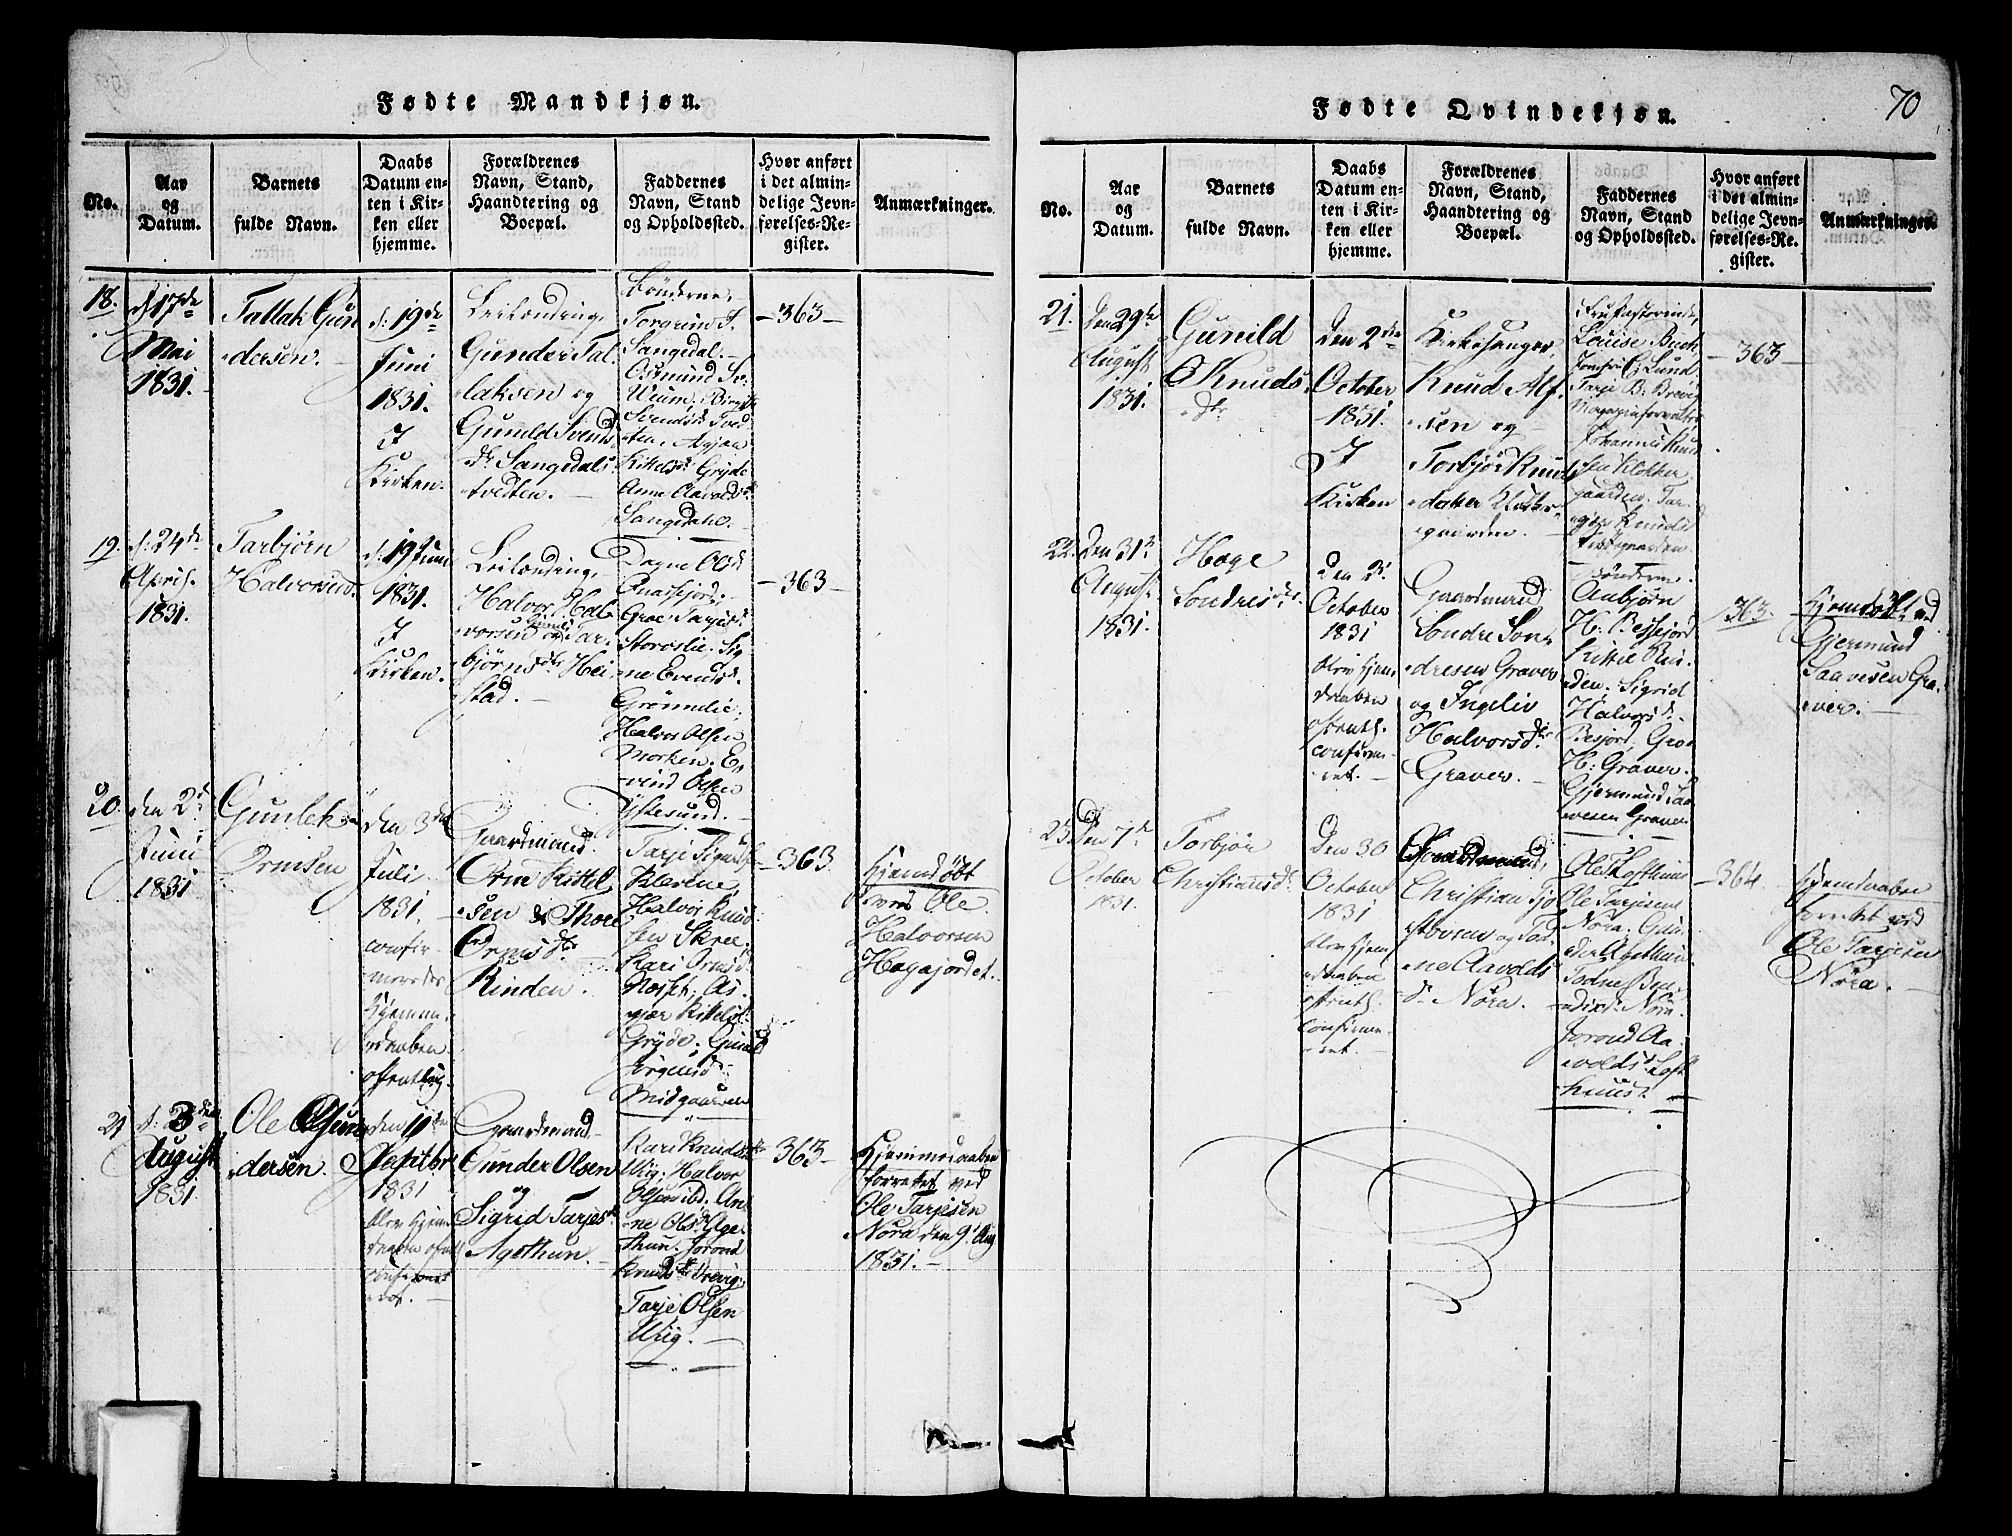 Fødte Mandkjøn.
No.
Aar
og
Datum.
Barnets
fulde Navn.
Daabs
Datum en-
ten i Kir-
ken eller
hjemme.
Forældrenes
Navn, Stand,
Haandtering og
Boepæl.
Faddernes
Navn, Stand
og Opholdssted.
Hvor anført
i det almin-
delige Jevn-
førelses-Re-
gister.
Anmærkninger.
18.
d: 17de
Mai
1831.
Tallak Gun
dersen.
d: 19de
Juni
1831.
I
Kirken.
Leilænding,
Gunder Tal-
laksen og
Gunild Svends
dr Sangedals
tvedten.
Bønderne,
Torgrim
Sangedal.
Osmund
Svendsdr Tved
ten, Asgjær
Kittelsdr Gryde
Anne Aavoldsdr
Sangedahl.
363
19.
d: 24de
April
1831.
Tarbjørn
Halvorsen.
d: 19 Juni
1831.
I
Kirken.
Leilænding,
Halvor Hal-
vorsen og Tar-
bjørnsdr Hei-
stad.
Dagne Olsdr
Groe Tarjesdr
Storoslie. Sig-
ne Evensdr
Grønnlie,
Halvor Olsen
Morken. E-
vind Olsen
Ystesund.
363
20.
den 2d
Juni
1831
Gunlek
Ormsen
den 3de
Juli
1831.
confir-
meredes
Hjemme
daaben
offentlig.
Gaardmand
Orm Kittel
sen & Thore
Ormsdr
Rinden.
Tarje Sigurds.
Klevene,
Halvor Knud
sen Skree.
Kari Ormsdr
Norset. As-
gjær Kittelsdr
Gryde. Gunild
Jørgensdr
Midgaarden
363
Hjemdøbt
ved Ole
Halvorsen
Hagajordet.
21
d: 3die
August
1831.
Ole Gun
dersen.
den 11te
Septbr
1831
blev hjem
daaben offentl
confirme
ret.
Gaardmand
Gunder Olsen
og
Sigrid Tarjesdr
Agethun.
Kari Knudsdr
Wiig. Halvor
Olsen ibd. An-
ne Olsdr Age-
thun. Jorond
Knudsdr Brevig,
Tarje Olsen
Wiig.
363
Hjemmedaaben
forrettet ved
Ole Tarjesen
Nora den 9d Aug
1831.
Fødte Qvindekjøn.
70
No.
Aar
og
Datum.
Barnets
fulde Navn.
Daabs
Datum en-
ten i Kir-
ken eller
hjemme.
Forældrenes
Navn, Stand,
Haandtering og
Boepæl.
Faddernes
Navn, Stand
og Opholdssted.
Hvor anført
i det almin-
delige Jevn-
førelses-Re-
gister.
Anmærkninger.
21.
den 29de
August
1831.
Gunild
Knuds
dr
den 2den
October
1831.
I
Kirken
Kirkesanger,
Knud Alf-
sen og
Torbjør Knuds
datter Klokker-
gaarden.
Louise Buch,
Jomfru C. Lund
Tarje B. Brevig
Magazinforvalter
Johannes Knud
sen Klokker
gaarden. Tar-
363
22.
den 31te
August
1831.
Hæge
Sondresdr
den 2d
October
1831
blev hjem
daaben
offentl.
confirme
ret.
Gaardmand
Sondre Son-
dresen Graver
og Ingeliv
Halvorsdr
Graver.
Bønderne.
Anbjørn
H. Bessejord
Kittil Rin-
den. Sigrid
Halvorsdr
Besjord, Groe
H: Graver.
Gjermund Saa-
vesen Graver
363.
Hjemdøbt ved
Gjermund
Saavesen Gra-
ver.
23.
Den 7de
October
1831.
Torbjør
Christiansdr
Den 30
October
1831
blev hjem
daaben
offentl.
confirme
ret.
Gaardmand,
Christian Gjø
og Tod-
ne Aavolds
dr Nora.
Ole Tarjesen
Nora. Gun-
der Agethun.
Todne Ben-
Nora.
Jorond Aa-
voldsdr Loft
huus.
364.
Hjemdaaben
forrettet ved
Ole Tarjesen
Nora.